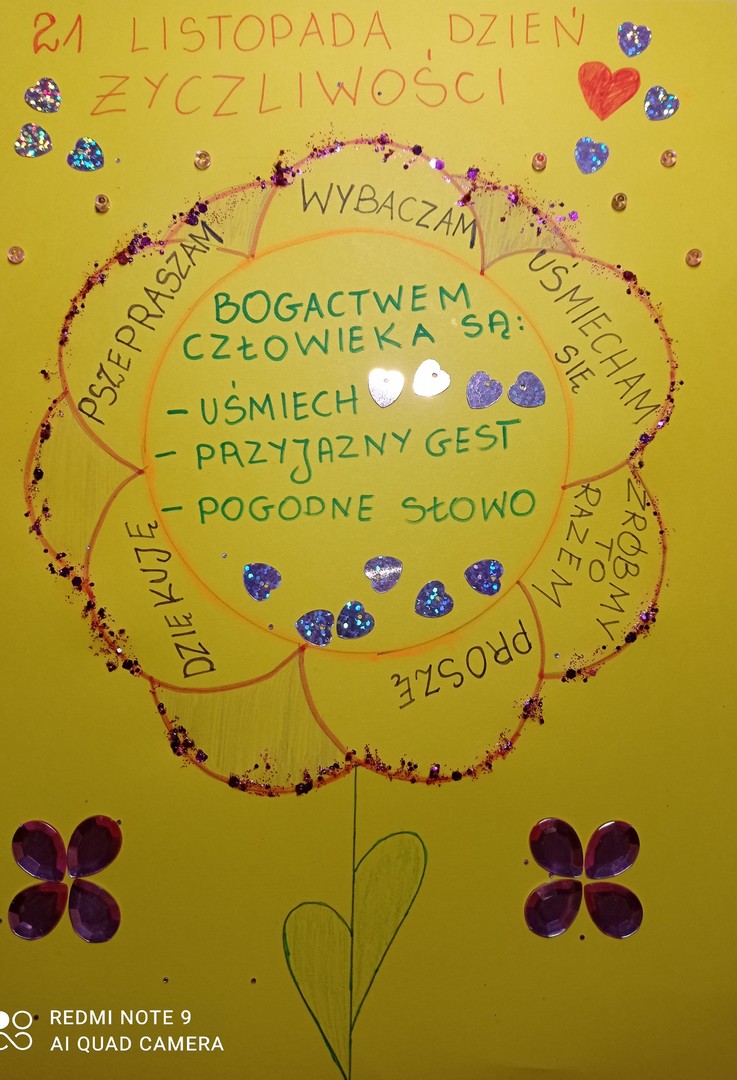 21 LISTOPADA DZIEŃ
ŻYCZLIWOŚCI
WYBACZAM
UŚMIECHAM
SIĘ
ZRÓBMY
TO
RAZEM
PROSZĘ
DZIĘKUJĘ
PSZEPRASZAM
BOGACTWEM
CZŁOWIEKA SĄ:
- UŚMIECH
- PRZYJAZNY GEST
- POGODNE SŁOWO
REDMI NOTE 9
AI QUAD CAMERA